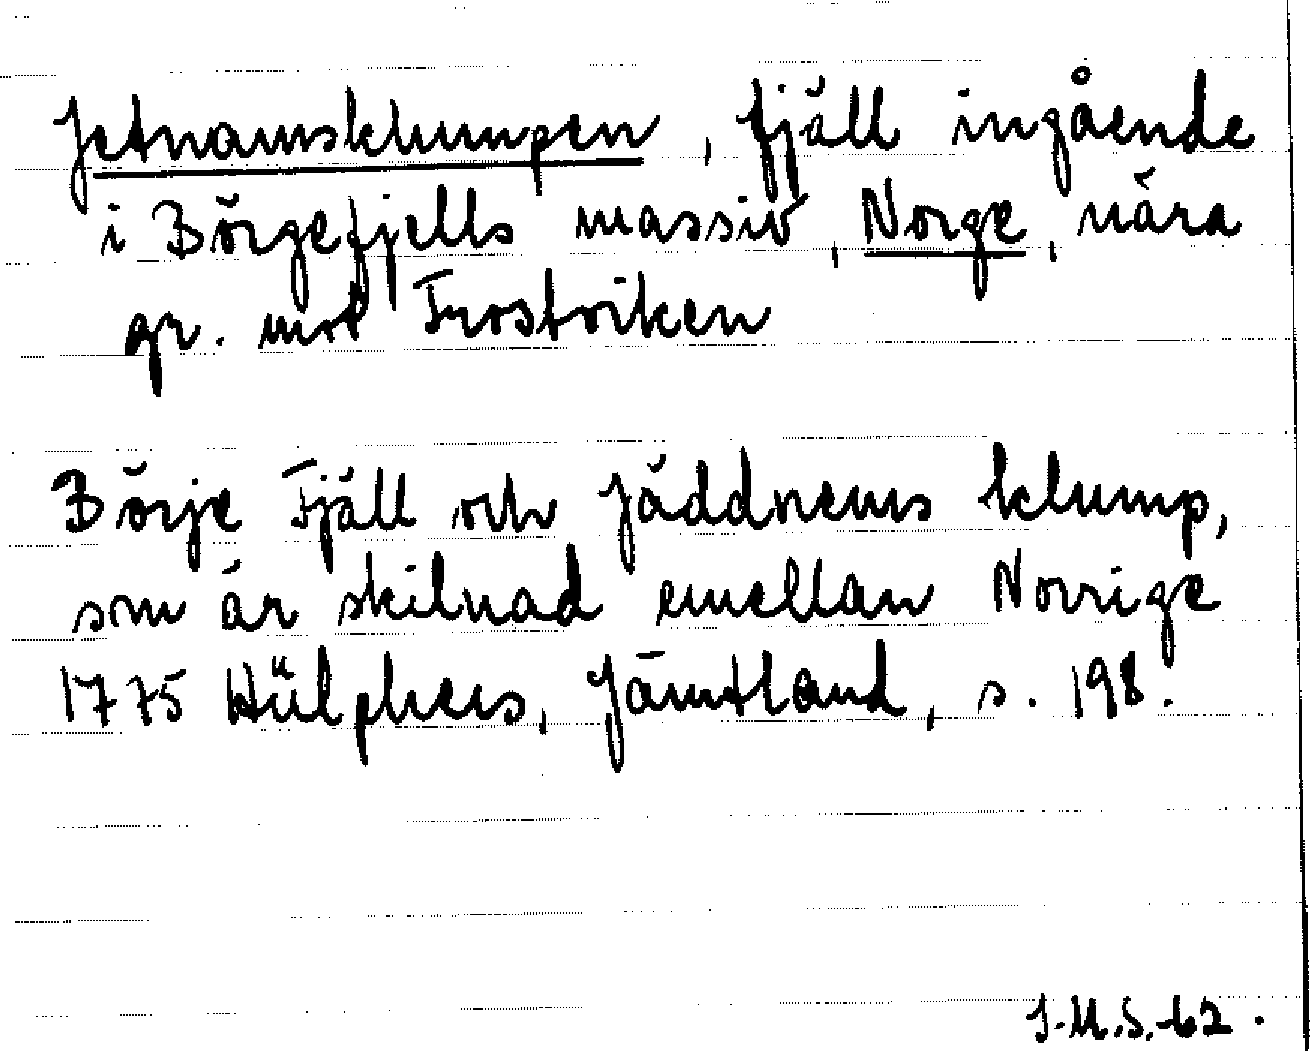 Jetnamsklumpen, fjäll ingående
i Börgefjells massiv, Norge, nära
gr. mot Frostviken
Börje Fjäll och Jäddnems klump,
som är skilnad emellan Norrige
1775 Hülphers, Jämtland, s. 198.
J.M.S. -62.